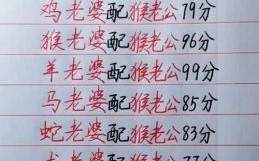 鸡老婆配猴老公79分
猴老婆配猴老公96分
羊老婆配猴老公99分
马老婆配猴老公85分
蛇老婆配猴老公83分
老婆配猴老公77分